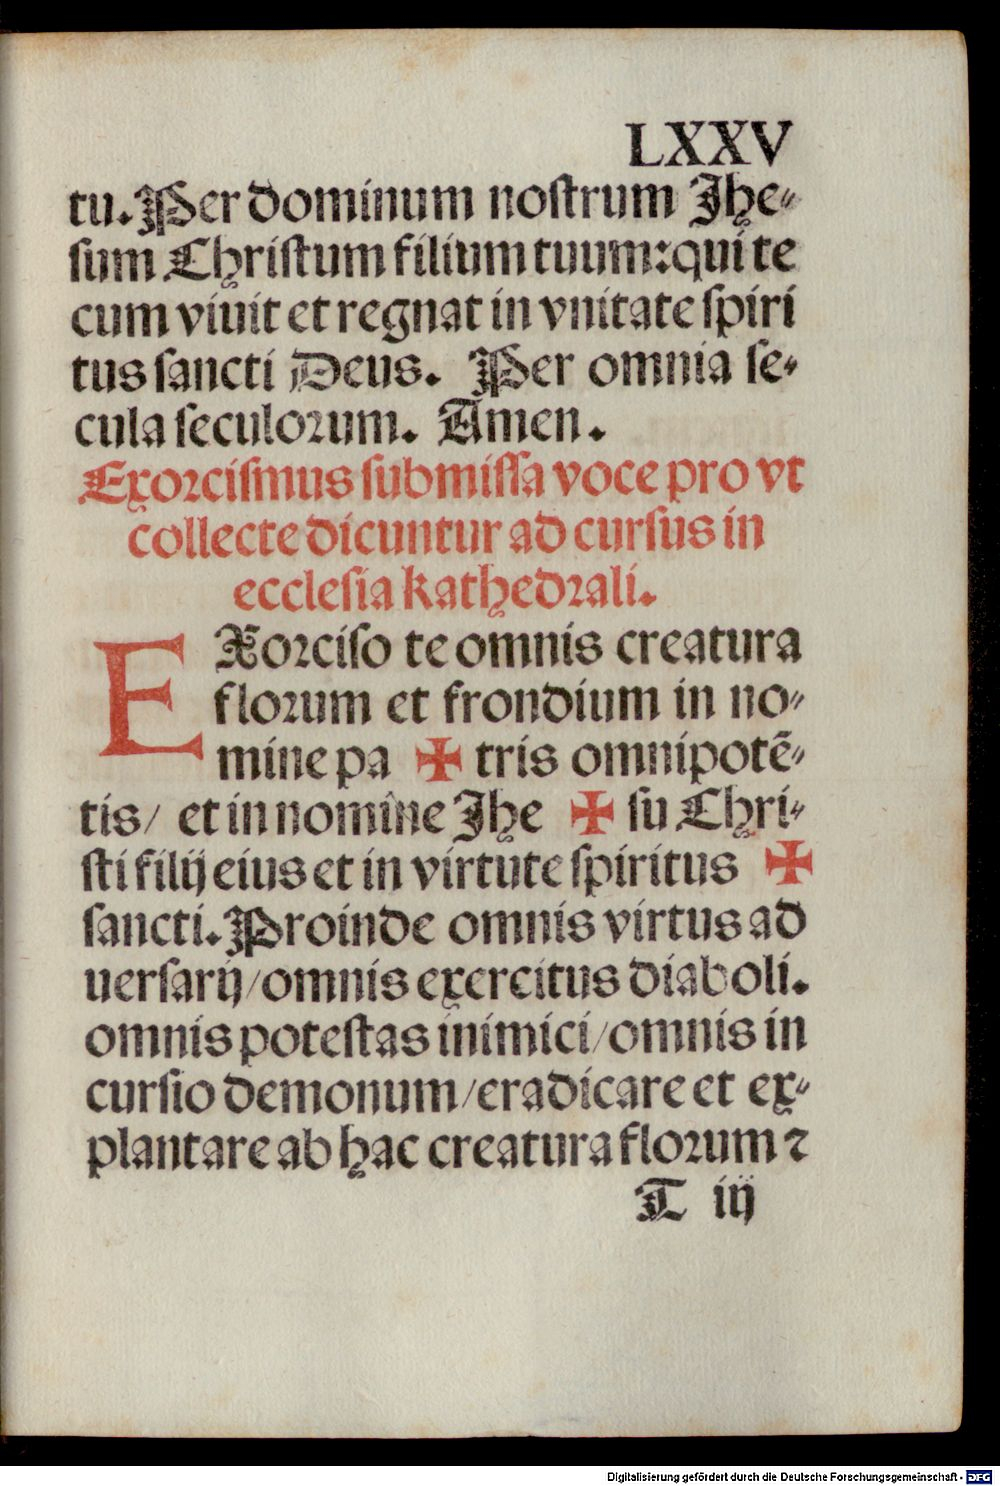 LXXV
tu. Per dominum nostrum Jhe-
sum Christum filium tuum: qui te
cum viuit et regnat in vnitate spiri
tus sancti Deus. Per omnia se-
cula seculorum. Amen.
Exorcismus submissa voce pro vt
collecte dicuntur ad cursus in
ecclesia kathedrali.
EXorciso te omnis creatura
florum et frondium in no-
mine pa ✠ tris omnipotē-
tis/ et in nomine Jhe ✠ su Chri-
sti filij eius et in virtute spiritus ✠
sancti. Proinde omnis virtus ad
uersarij/ omnis exercitus diaboli.
omnis potestas inimici/ omnis in
cursio demonum/ eradicare et ex-
plantare ab hac creatura florum ⁊
T iij
Digitalisierung gefördert durch die Deutsche Forschungsgemeinschaft - DFG